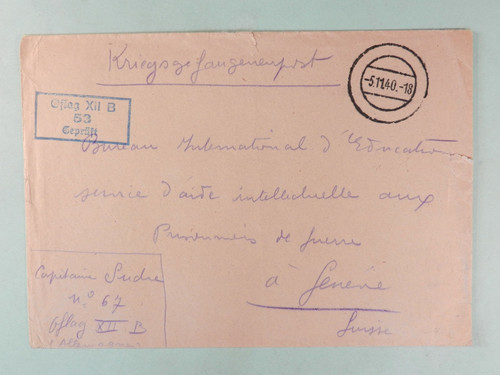 Kriegsgefangenenpost
-5.11.40.-18
Oflag XII B
53
Geprüft
Bureau International d'Education
service d'aide intellectuelle aux
Prisonniers de guerre
à Genève
Suisse
Capitaine Sudre
n° 67
Oflag XII B